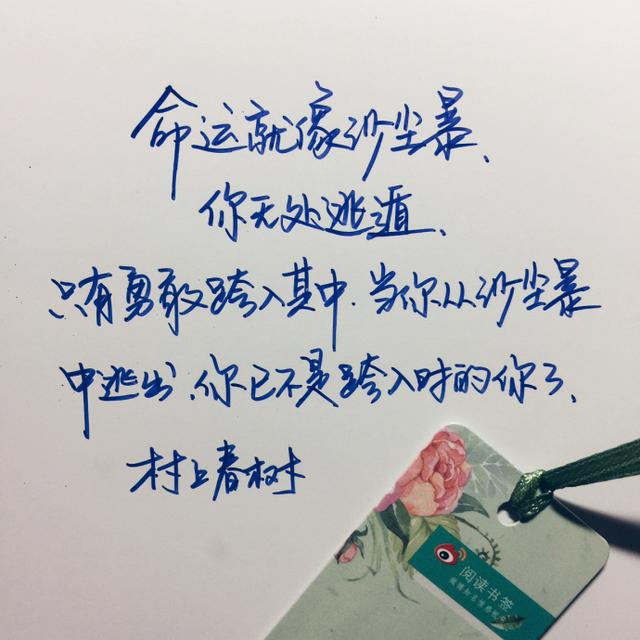 命运就像沙尘暴、
你无处逃遁、
只有勇敢跨入其中.当你从沙尘暴
中逃出、你已不是跨入时的你了、
村上春树
阅读书签